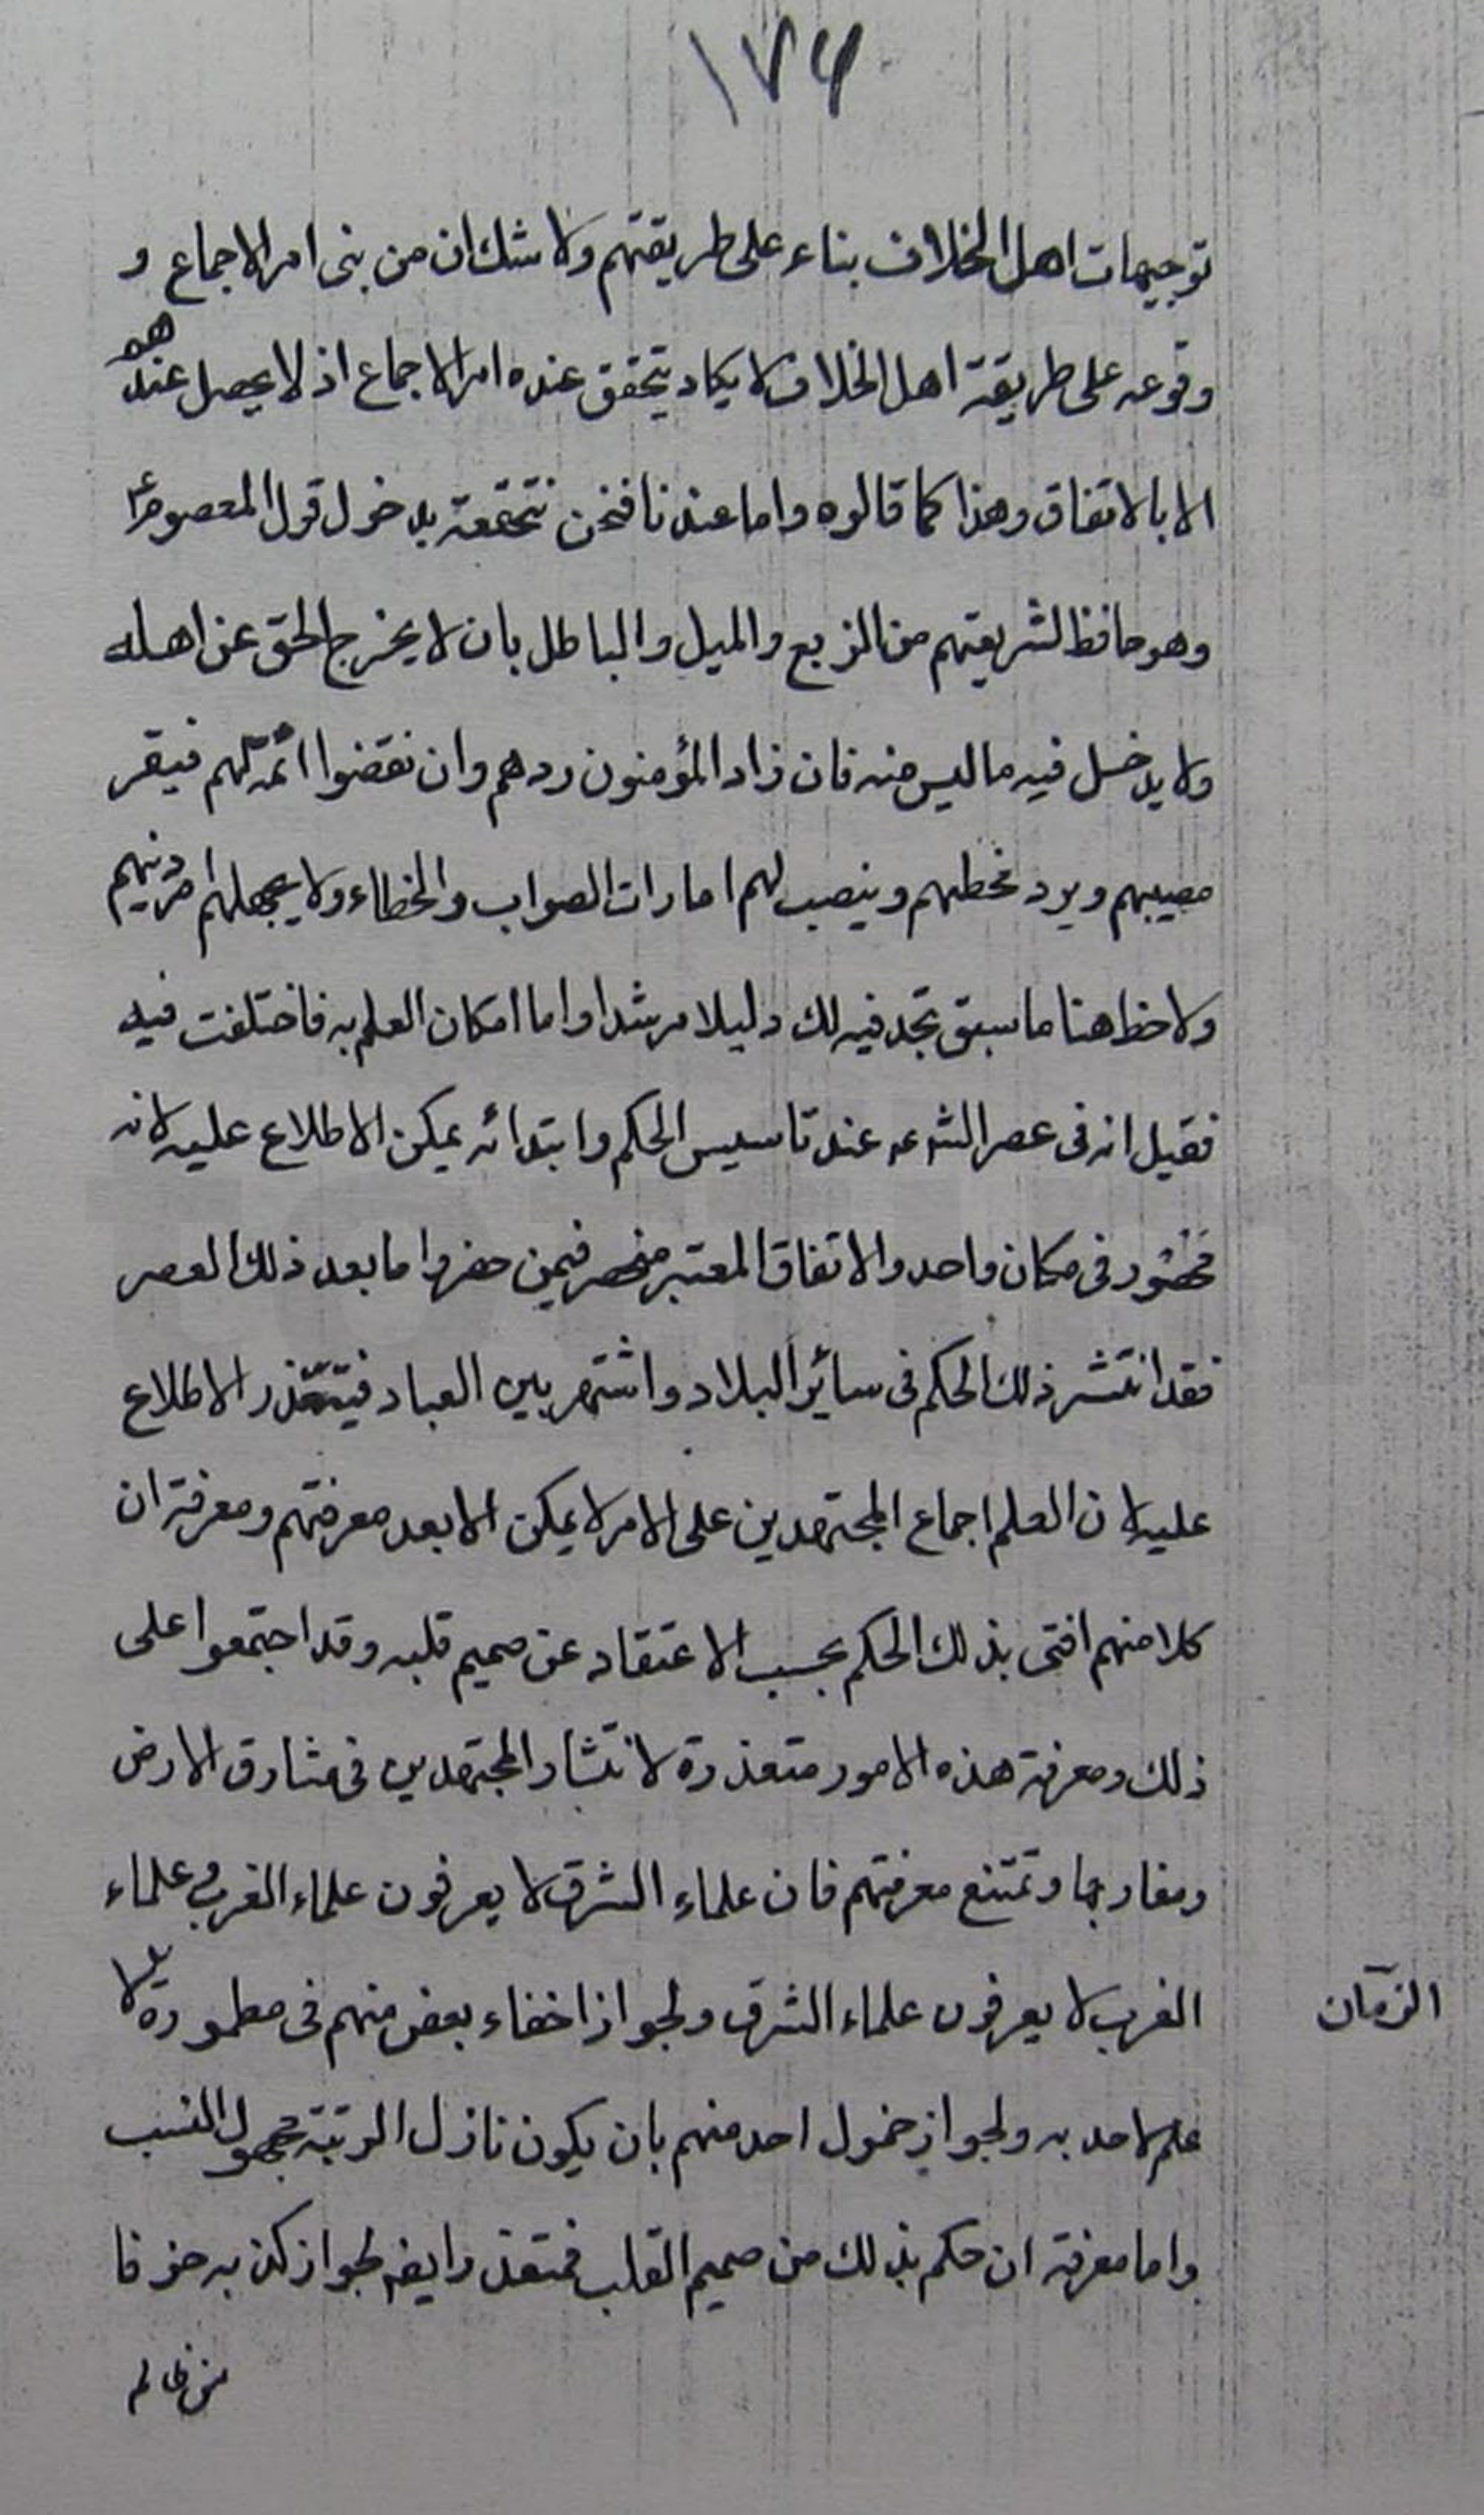 ١٧٤
توجيهات اهل الخلاف بناء على طريقتهم ولا شك ان من بنى امر الاجماع و
وقوعه على طريقة اهل الخلاف لا يكاد يتحقق عنده امر الاجماع اذ لا يحصل عندهم
الا بالاتفاق وهذا كما قالوه واما عندنا فنحن نتحققه بدخول قول المعصوم ع
وهو حافظ لشريعتهم من الزيع والميل والباطل بان لا يخرج الحق عن اهله
ولا يدخل فيه ما ليس منه فان زاد المؤمنون ردهم وان نقضوا اتمه لهم فيقر
مصيبهم ويرد مخطيهم وينصب لهم امارات الصواب والخطاء ولا يجهلهم امر دينهم
ولاحظ هنا ما سبق تجد فيه لك دليلا مرشدا واما امكان العلم به فاختلفت فيه
فقيل انه فى عصر الشرع عند تاسيس الحكم وابتدائه يمكن الاطلاع عليه لانه
محصور فى مكان واحد والاتفاق المعتبر منحصر فيمن حضر واما بعد ذلك العصر
فقد انتشر ذلك الحكم فى سائر البلاد واشتهر بين العباد فيتعذر الاطلاع
عليه لان العلم اجماع المجتهدين على الامر لا يمكن الا بعد معرفتهم ومعرفة ان
كلا منهم افتى بذلك الحكم بحسب الاعتقاد عن صميم قلبه وقد اجتمعوا على
ذلك ومعرفة هذه الامور متعذرة لانتشار المجتهدين فى مشارق الارض
ومغاربها وتمتنع معرفتهم فان علماء الشرق لا يعرفون علماء الغرب وعلماء
الغرب لا يعرفون علماء الشرق ولجواز اخفاء بعض منهم فى مطمورة لا
الزمان
علم لاحد به ولجواز خمول احد منهم بان يكون نازل الرتبة مجهول النسب
واما معرفة ان حكم بذلك من صميم القلب فمتعذر ايضا لجواز كذبه خوفا
من ظالم